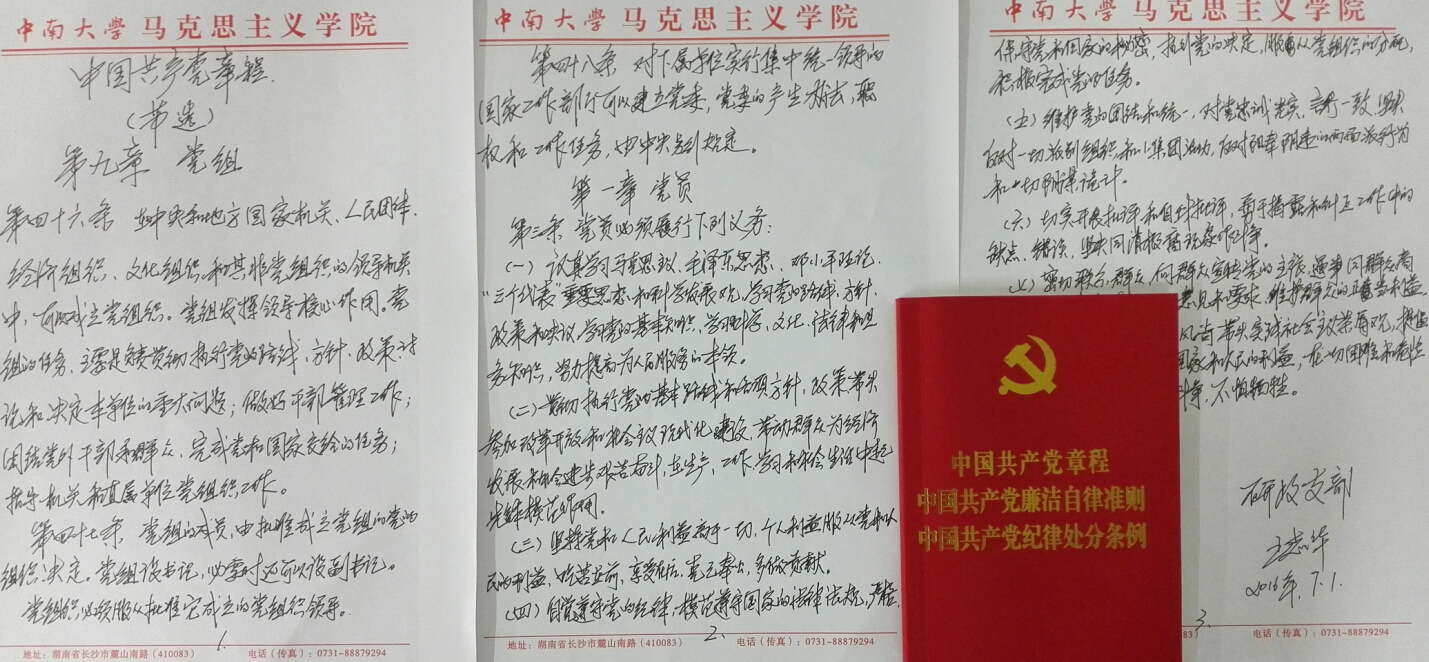 中南大学 马克思主义学院
中国共产党章程
（节选）
第九章 党组
第四十六条 在中央和地方国家机关、人民团体、
经济组织、文化组织和其他非党组织的领导机关
中，可以成立党组织。党组发挥领导核心作用。党
组的任务，主要是负责贯彻执行党的路线、方针、政策；讨
论和决定本单位的重大问题；做好干部管理工作；
团结党外干部和群众，完成党和国家交给的任务；
指导机关和直属单位党组织工作。
第四十七条 党组的成员，由批准成立党组的党的
组织决定。党组设书记，必要时还可以设副书记。
党组织必须服从批准它成立的党组织领导。
1.
地址：湖南省长沙市麓山南路（410083） 电话（传真）：0731-88879294
中南大学 马克思主义学院
第四十八条 对下属单位实行集中统一领导的
国家工作部门可以建立党委，党委的产生办法、职
权和工作任务，由中央另行规定。
第一章 党员
第三条 党员必须履行下列义务：
（一）认真学习马克思主义、毛泽东思想、邓小平理论、
“三个代表”重要思想和科学发展观，学习党的路线、方针、
政策和决议，学习党的基本知识，学习科学、文化、法律和业
务知识，努力提高为人民服务的本领。
（二）贯彻执行党的基本路线和各项方针、政策，带头
参加改革开放和社会主义现代化建设，带动群众为经济
发展和社会进步艰苦奋斗，在生产、工作、学习和社会生活中起
先锋模范作用。
（三）坚持党和人民利益高于一切，个人利益服从党和人
民的利益，吃苦在前，享受在后，克己奉公，多做贡献。
（四）自觉遵守党的纪律，模范遵守国家的法律法规，严格
2.
地址：湖南省长沙市麓山南路（410083） 电话（传真）：0731-88879294
中南大学 马克思主义学院
保守党和国家的秘密，执行党的决定，服从党组织的分配，
积极完成党的任务。
（五）维护党的团结和统一，对党忠诚老实，言行一致，坚决
反对一切派别组织和小集团活动，反对阳奉阴违的两面派行为
和一切阴谋诡计。
（六）切实开展批评和自我批评，勇于揭露和纠正工作中的
缺点、错误，坚决同消极腐败现象作斗争。
（七）密切联系群众，向群众宣传党的主张，遇事同群众商
意见和要求，维护群众的正当利益
风尚，带头实践社会主义荣辱观，提倡
国家和人民的利益，在一切困难和危险
斗争，不怕牺牲。
研故支部
2016年.7.1.
3.
083） 电话（传真）：0731-88879294
中国共产党章程
中国共产党廉洁自律准则
中国共产党纪律处分条例